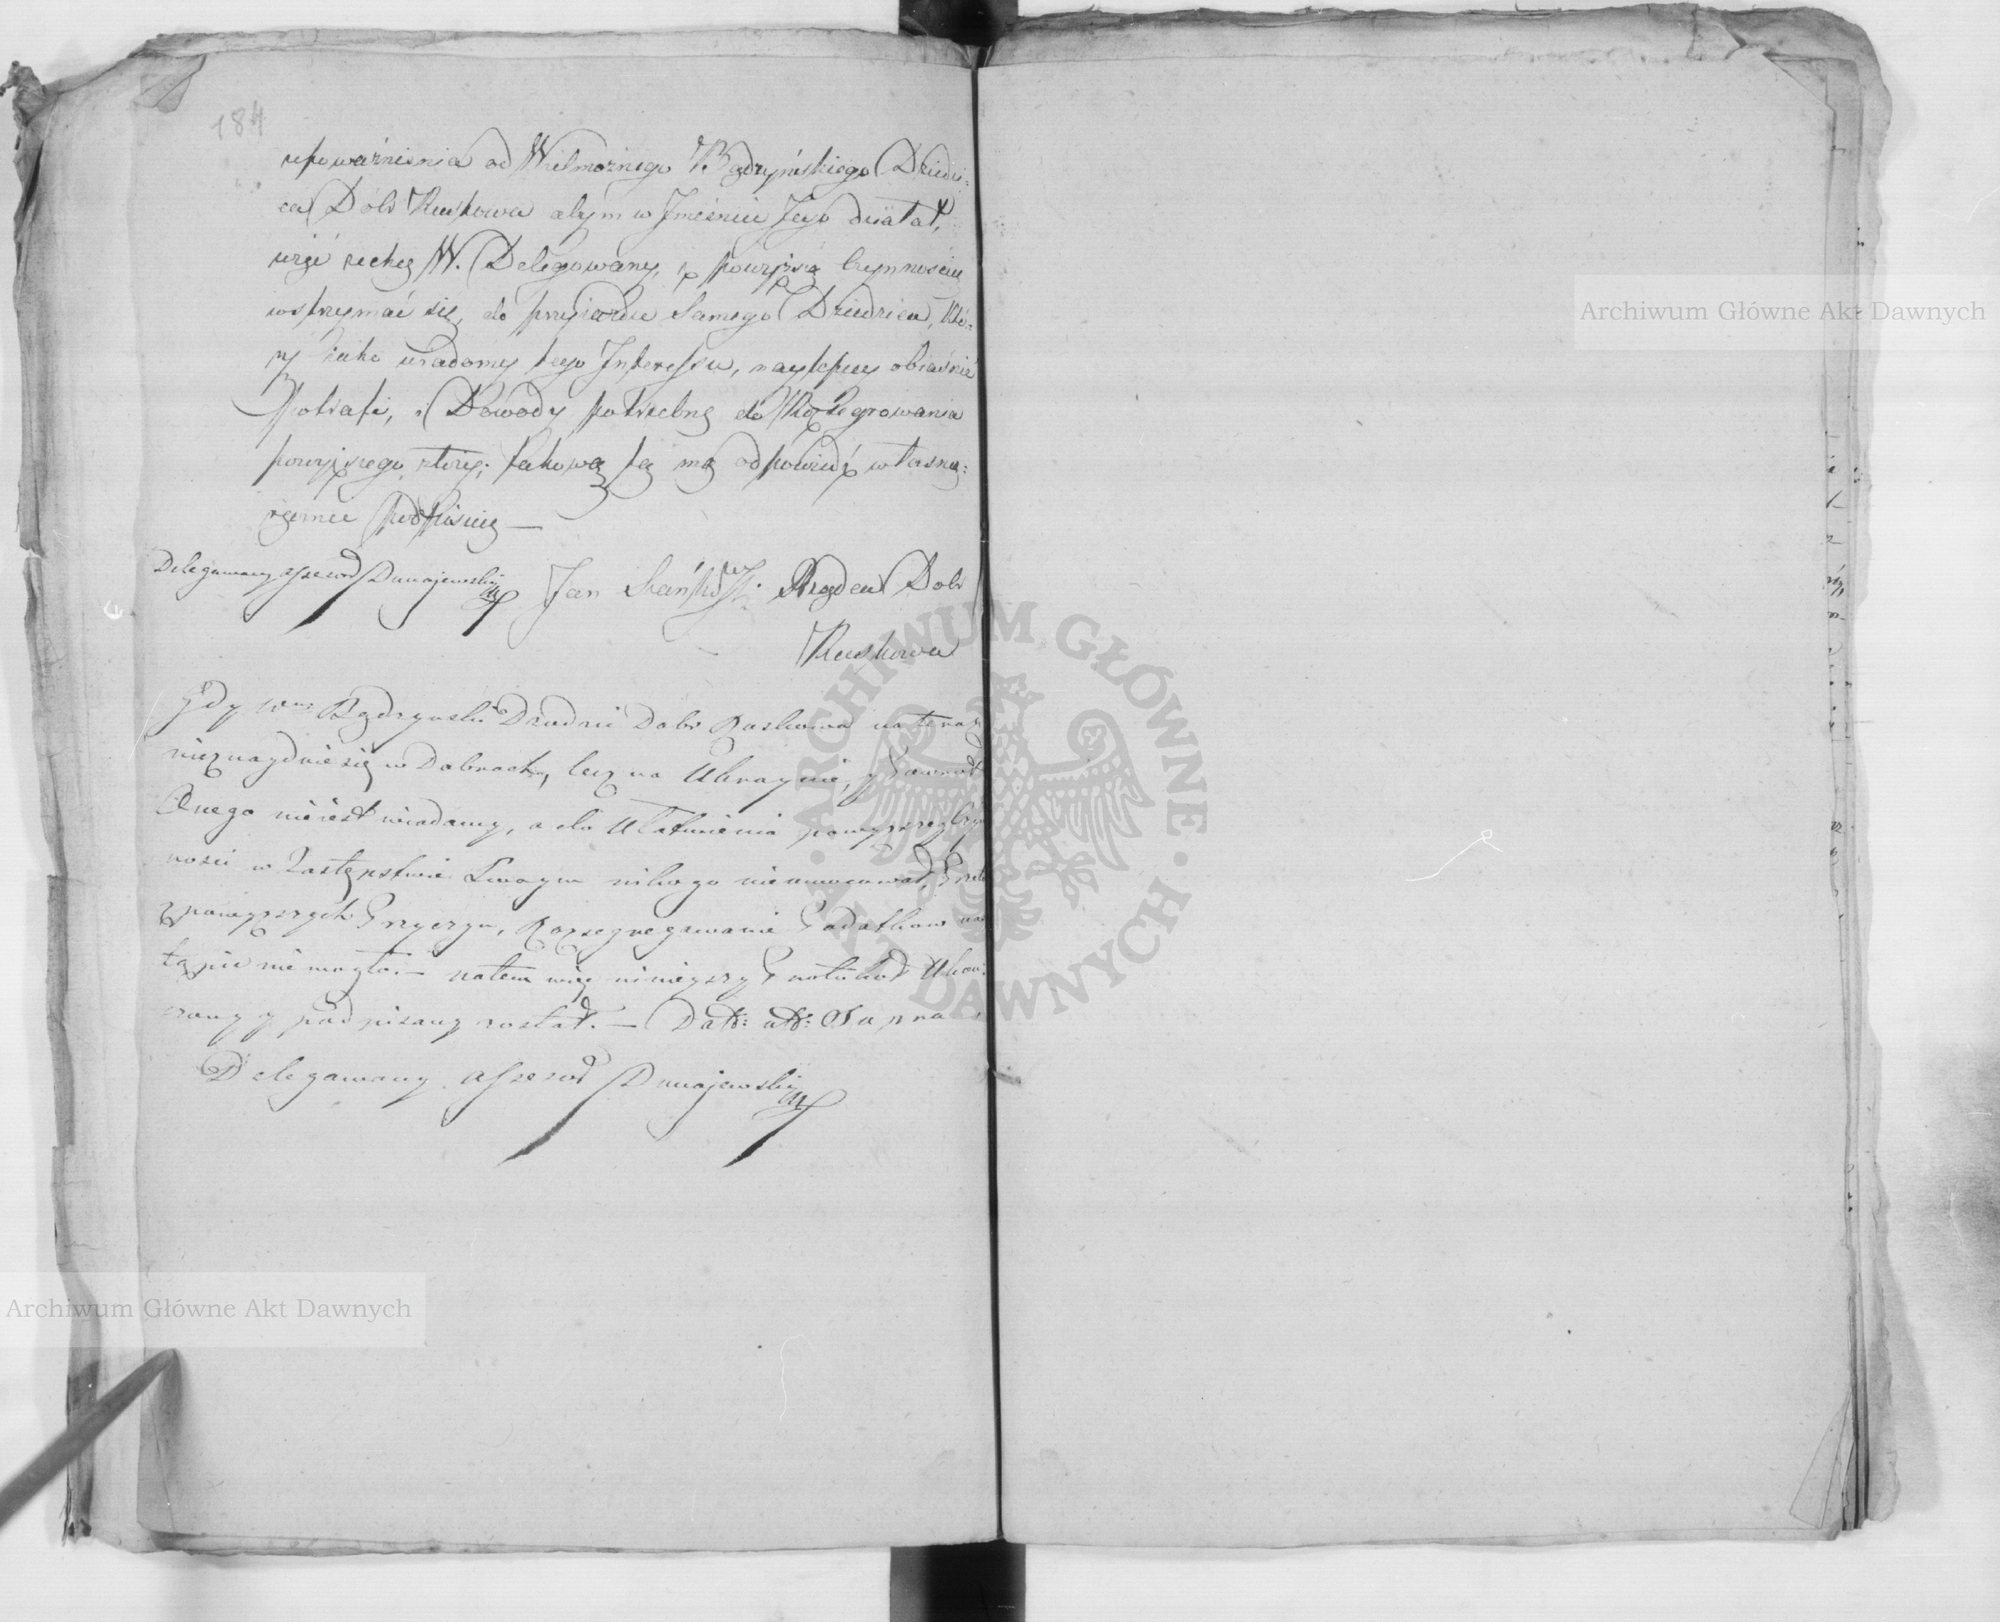 184
upoważnienia od Wielmożnego Bądzyńskiego Dziedzi-
ca Dobr Ruskowa abym w Jmieniu Jego działał,
więc zechcę W. Delegowany, z powyższą Czynnoscią
wstrzymać się, do przyiazdu Samego Dziedzica, Któ-
ry iako wiadomy tego Interessu, naylepiey obiaśnić
Potrafi, i Dowody potrzebne do Rozsegrowania
powyższego złoży; takową tę mą odpowiedź własno-
ręcznie podpisuię —
Delegowany assessor Dunajewski
Jan Rządca Dobr
Ruskowa
Gdy Wny Bądzynski Dziedzic Dobr Ruskowa na teraz
nieznayduie się w Dobrach, lecz na Ukrainie, y Powrot
Onego nieiest wiadomy, a do Ułatwienia powyższey Czyn
nosci w Zastępstwie Swoym nikogo nieumocował, Przeto
z powyższych Przyczyn, Rozsegregowanie Podatkow nas
tąpić niemogło — natem więc ninieyszy Protokoł Ukoń
czony y podpisany został. — Dat: ut: Supra
Delegowany assessor Dunajewski
Archiwum Główne Akt Dawnych
Archiwum Główne Akt Dawnych
ARCHIWUM GŁÓWNE AKT DAWNYCH